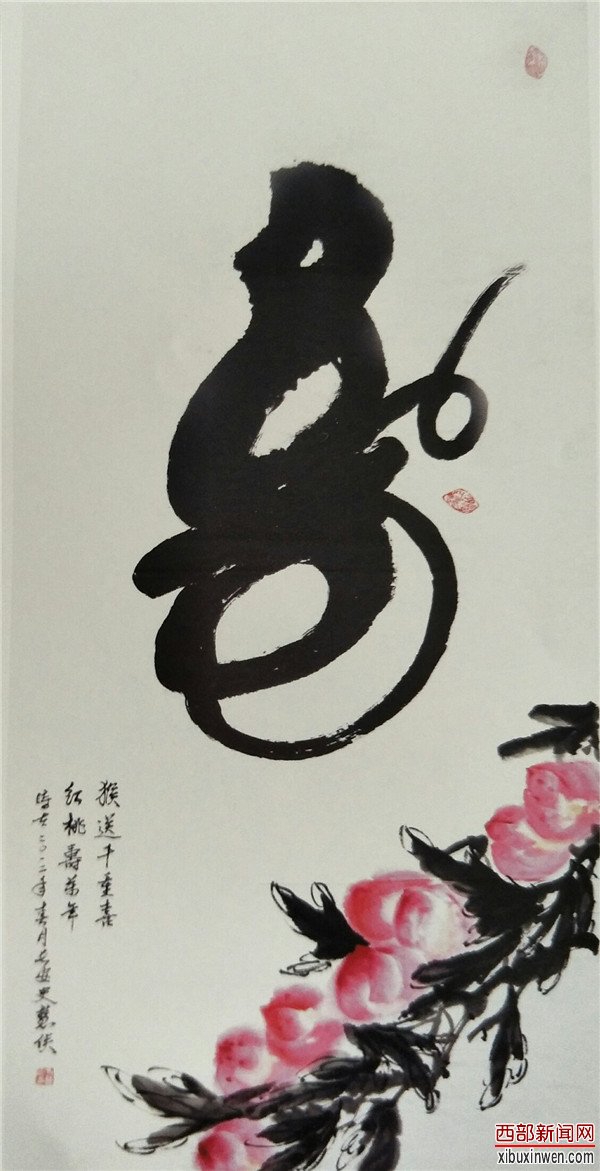 猴送千重喜
红桃壽萬年
時在二〇一二年春月长安史慧侠
西部新闻网
xibuxinwen.com